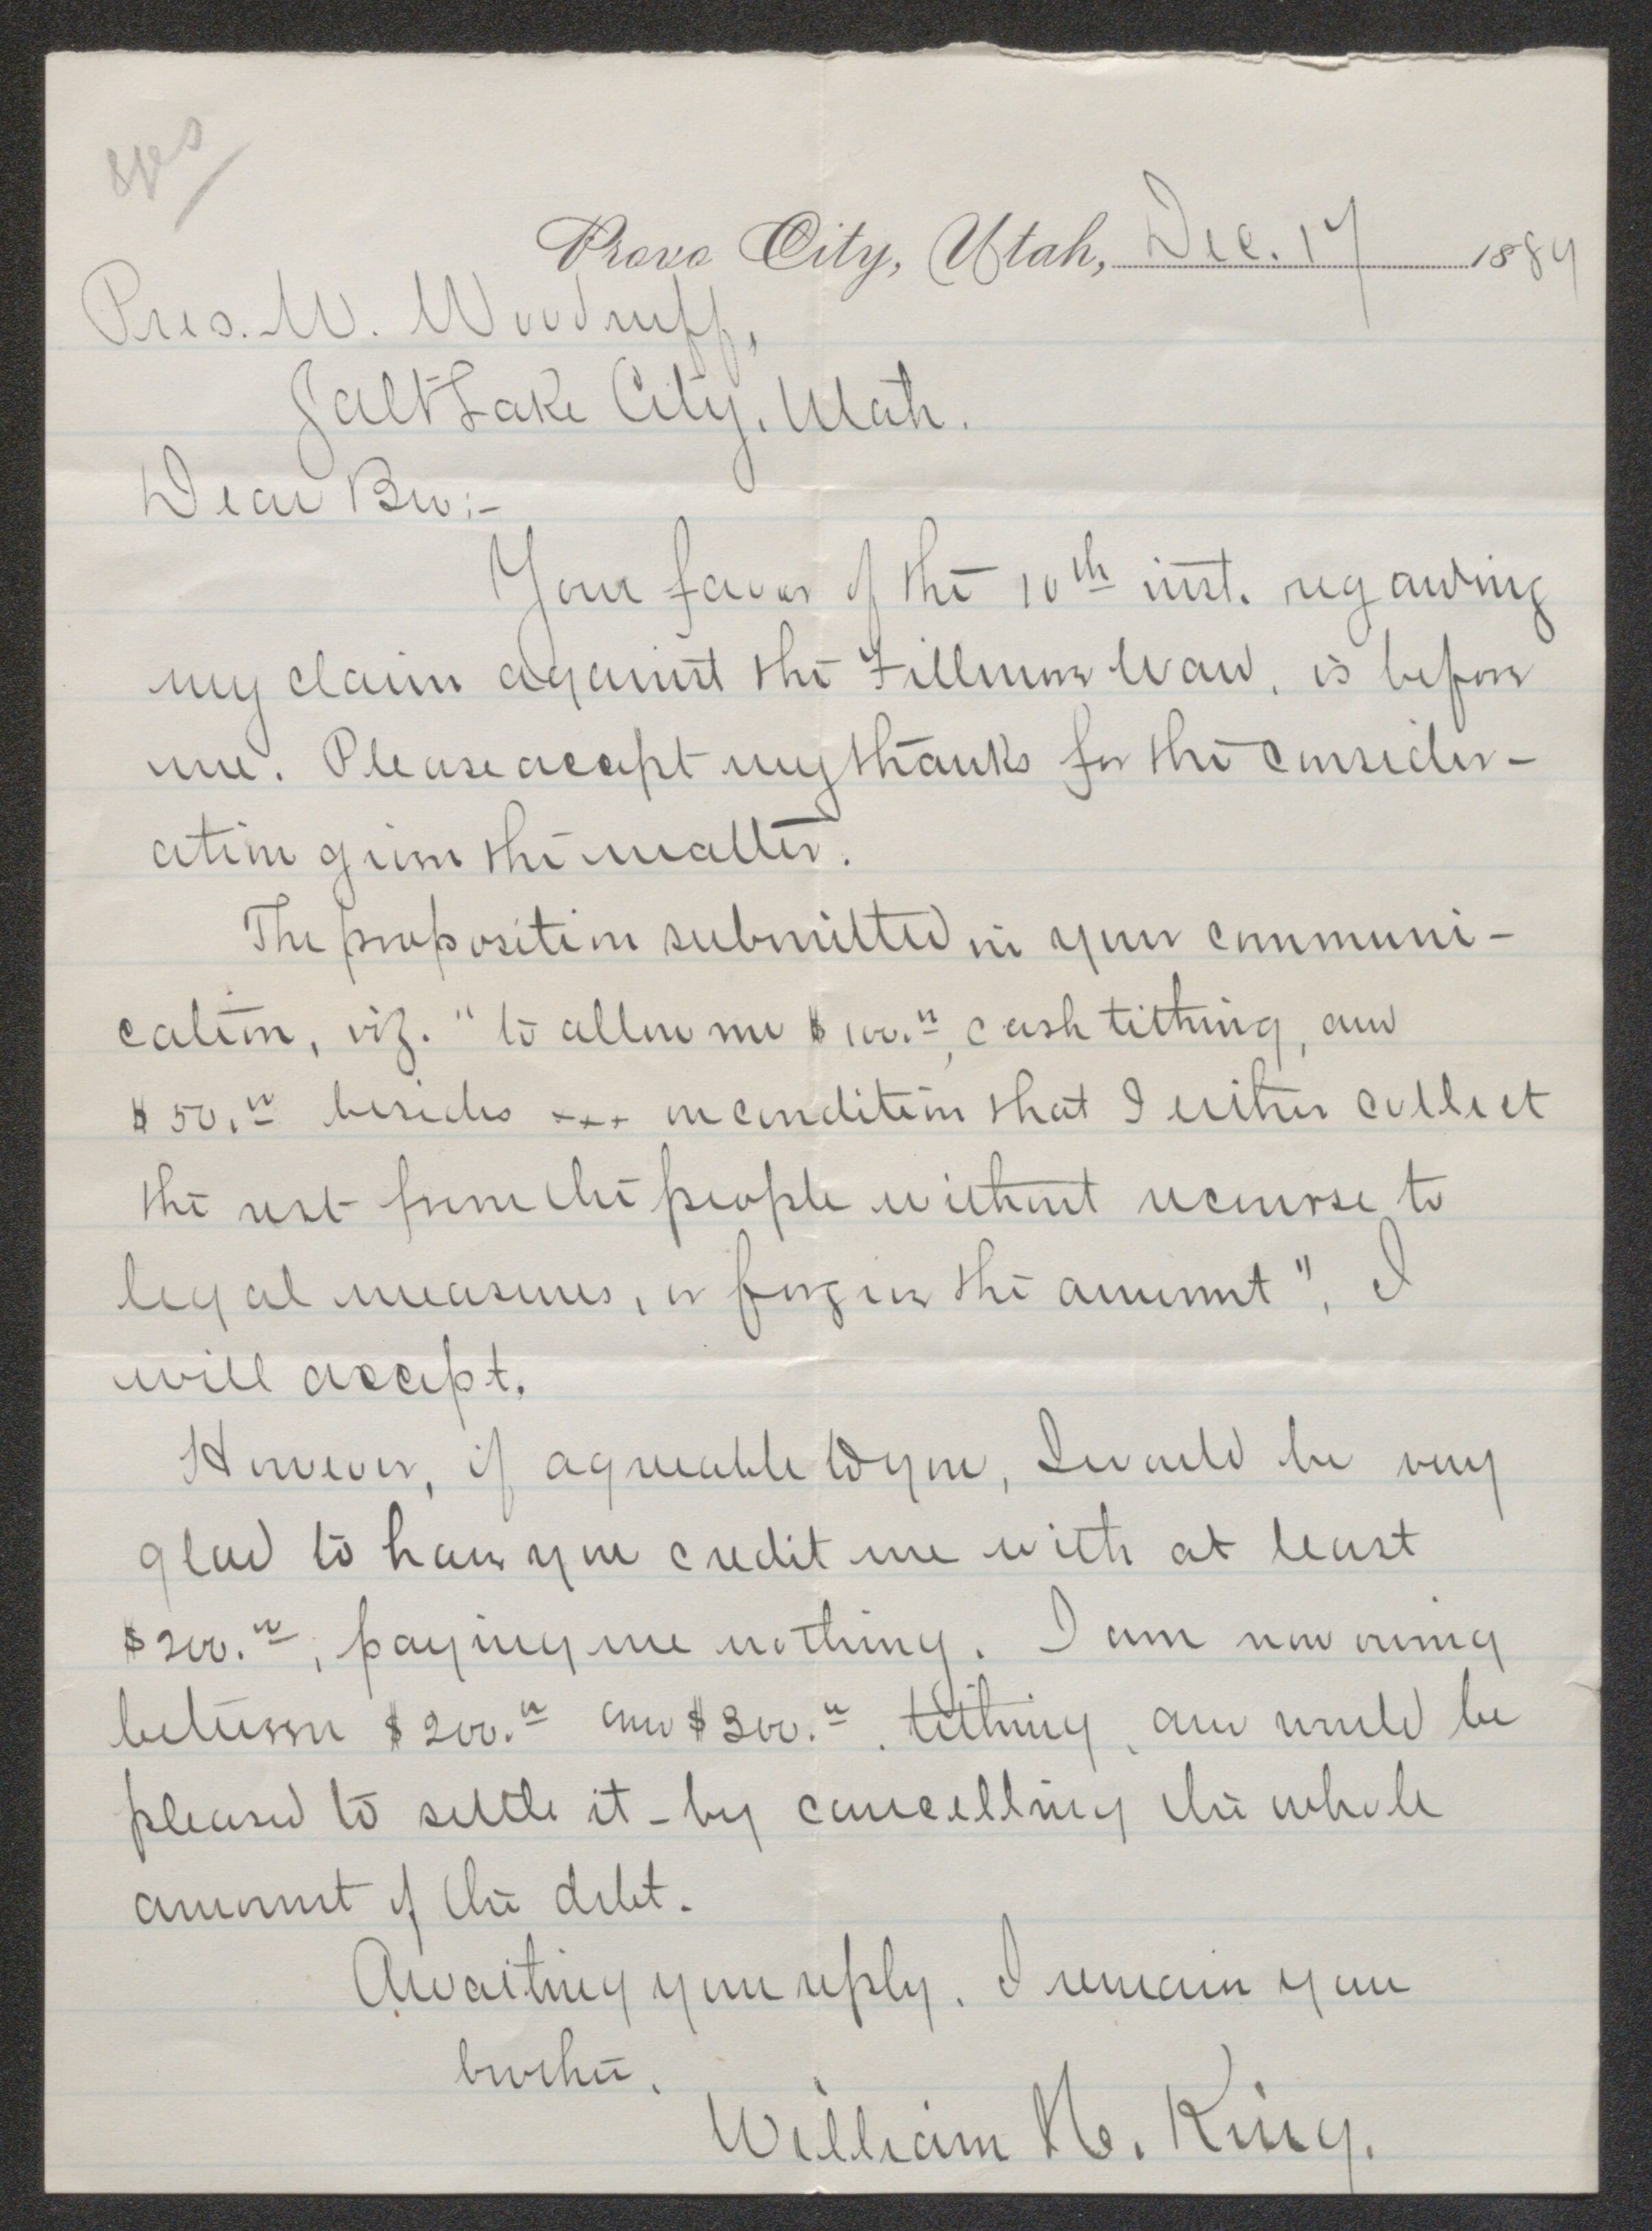 Provo City, Utah, Dec. 17 1889
Pres. W. Woodruff,
Salt Lake City, Utah.
Dear Bro:-
Your favor of the 10th inst. regarding
my claim against the Fillmore Ward, is before
me. Please accept my thanks for the consider-
ation given the matter.
The proposition submitted in your communi-
cation, viz. "to allow me $100.00, cash tithing, and
$50.00 besides xxx on condition that I either collect
the rest from the people without recourse to
legal measures, or forgive the amount", I
will accept.
However, if agreeable to you, I would be very
glad to have you credit me with at least
$200.00, paying me nothing. I am now owing
between $200.00 and $300.00, tithing, and would be
pleased to settle it by cancelling the whole
amount of the debt.
Awaiting your reply, I remain your
brother,
William H. King.